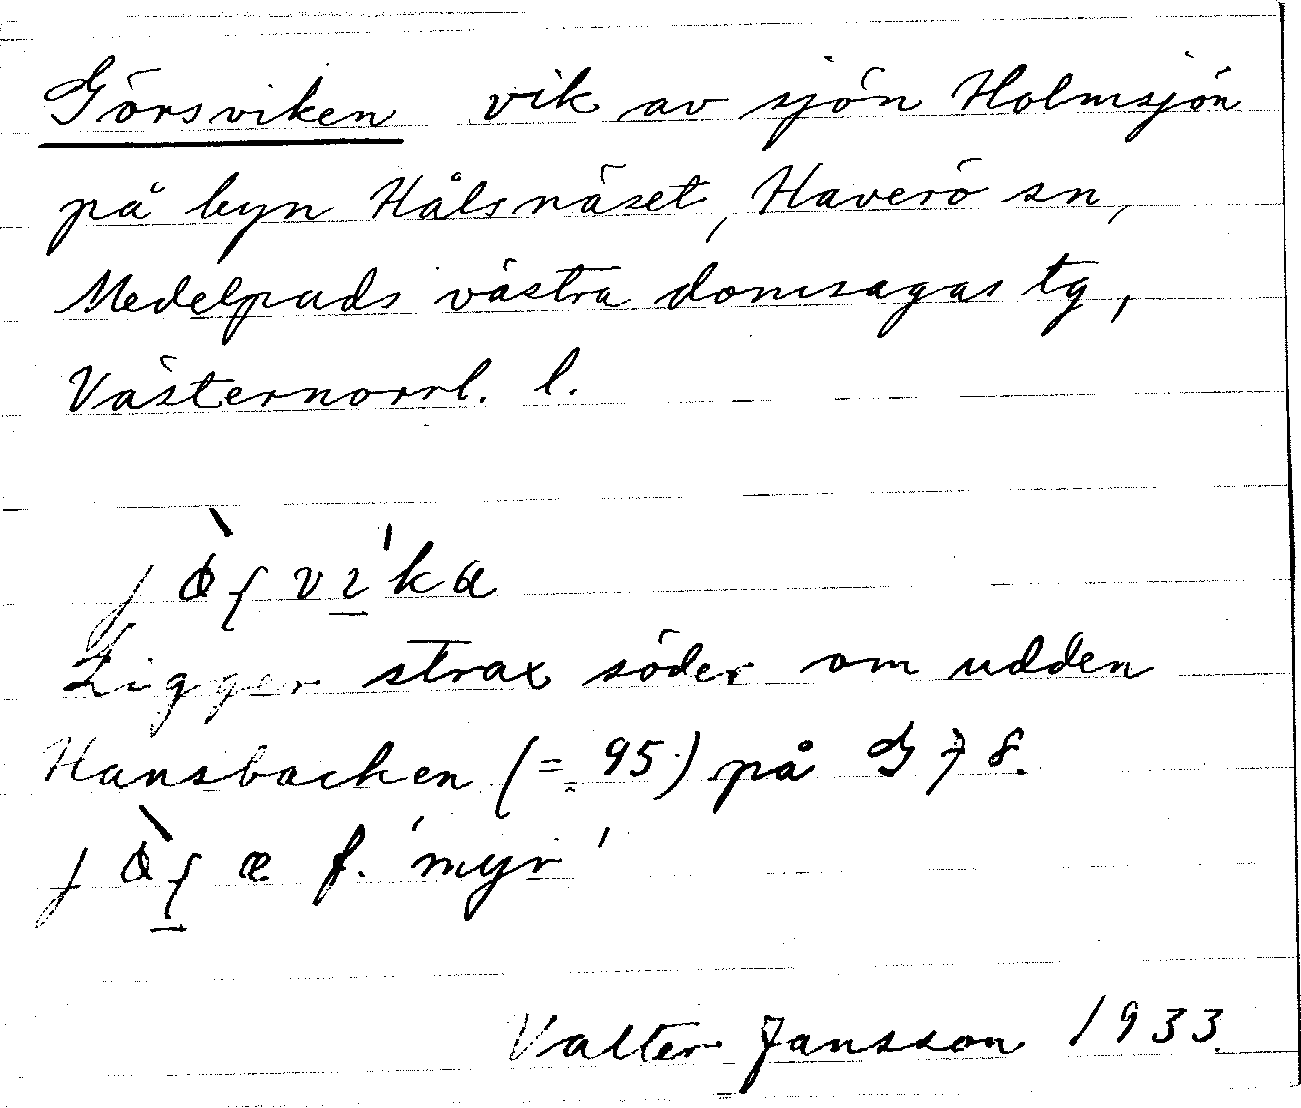 Görsviken vik av sjön Holmsjön
på byn Hålsnäset, Haverö sn,
Medelpads västra domsagas tg,
Västernorrl. l.
Ligger strax söder om udden
Hansbacken (= 95) på
f. 'myr'
Valter Jansson 1933.